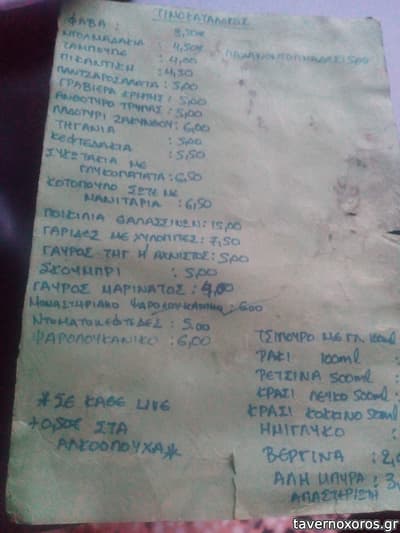 ΤΙΜΟΚΑΤΑΛΟΓΟΣ
ΦΑΒΑ : 3,50€
ΝΤΟΛΜΑΔΑΚΙΑ : 4,50€
: 4,00
ΠΙΚΑΝΤΙΚΗ : 4,50
ΠΑΝΤΖΑΡΟΣΑΛΑΤΑ : 5,00
ΓΡΑΒΙΕΡΑ ΚΡΗΤΗΣ : 5,00
ΑΝΘΟΤΥΡΟ ΤΡΥΠΑΣ : 5,00
ΛΑΔΟΤΥΡΙ ΖΑΚΥΝΘΟΥ : 6,00
ΤΗΓΑΝΙΑ : 5,00
ΚΕΦΤΕΔΑΚΙΑ : 5,50
ΣΥΚΩΤΑΚΙΑ ΜΕ
ΓΛΥΚΟΠΑΤΑΤΑ : 6,50
ΚΟΤΟΠΟΥΛΟ ΣΩΤΕ ΜΕ
ΜΑΝΙΤΑΡΙΑ : 6,50
ΠΟΙΚΙΛΙΑ ΘΑΛΑΣΣΙΝΩΝ : 15,00
ΓΑΡΙΔΕΣ ΜΕ ΧΥΛΟΠΙΤΕΣ : 7,50
ΓΑΥΡΟΣ ΤΗΓ Ή ΑΧΝΙΣΤΟΣ : 5,00
ΣΚΟΥΜΠΡΙ : 5,00
ΓΑΥΡΟΣ ΜΑΡΙΝΑΤΟΣ : 4,00
ΜΟΝΑΣΤΗΡΙΑΚΟ : 6,00
ΝΤΟΜΑΤΟΚΕΦΤΕΔΕΣ : 5,00
ΨΑΡΟΛΟΥΚΑΝΙΚΟ : 6,00
* ΣΕ ΚΑΘΕ LIVE
+0,50€ ΣΤΑ
ΑΛΚΟΟΛΟΥΧΑ *
ΤΣΙΠΟΥΡΟ ΜΕ ΓΛ. 100ml
ΡΑΚΙ 100ml
ΡΕΤΣΙΝΑ 500ml :
ΚΡΑΣΙ ΛΕΥΚΟ 500ml :
ΚΡΑΣΙ ΚΟΚΚΙΝΟ 500ml :
ΗΜΙΓΛΥΚΟ :
ΒΕΡΓΙΝΑ : 2,
ΑΛΗ ΜΠΥΡΑ : 3,
ΑΠΑΣΤΕΡΙΩΤΗ
tavernoxoros.gr